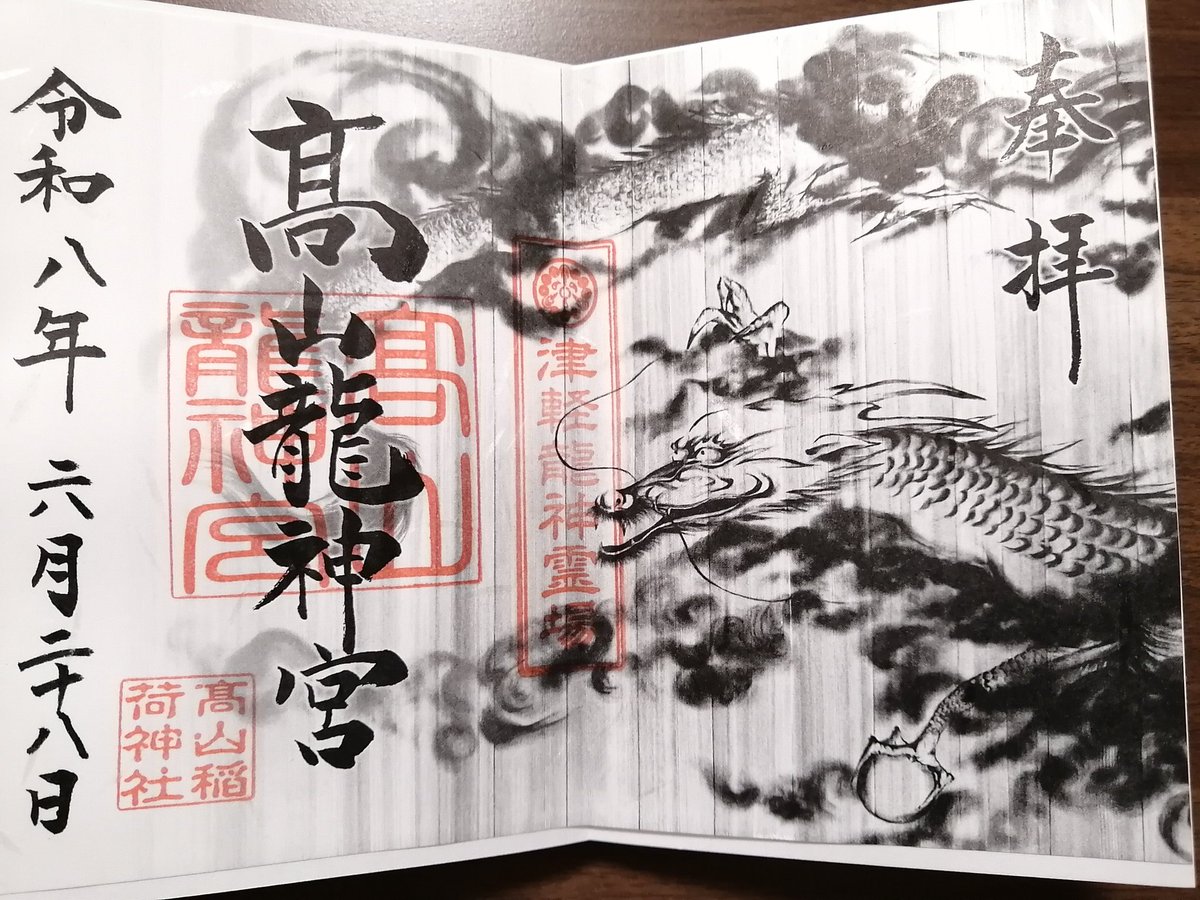 奉拝
津軽龍神霊場
髙山龍神宮
髙山龍神宮
髙山稲荷神社
令和八年 六月二十八日